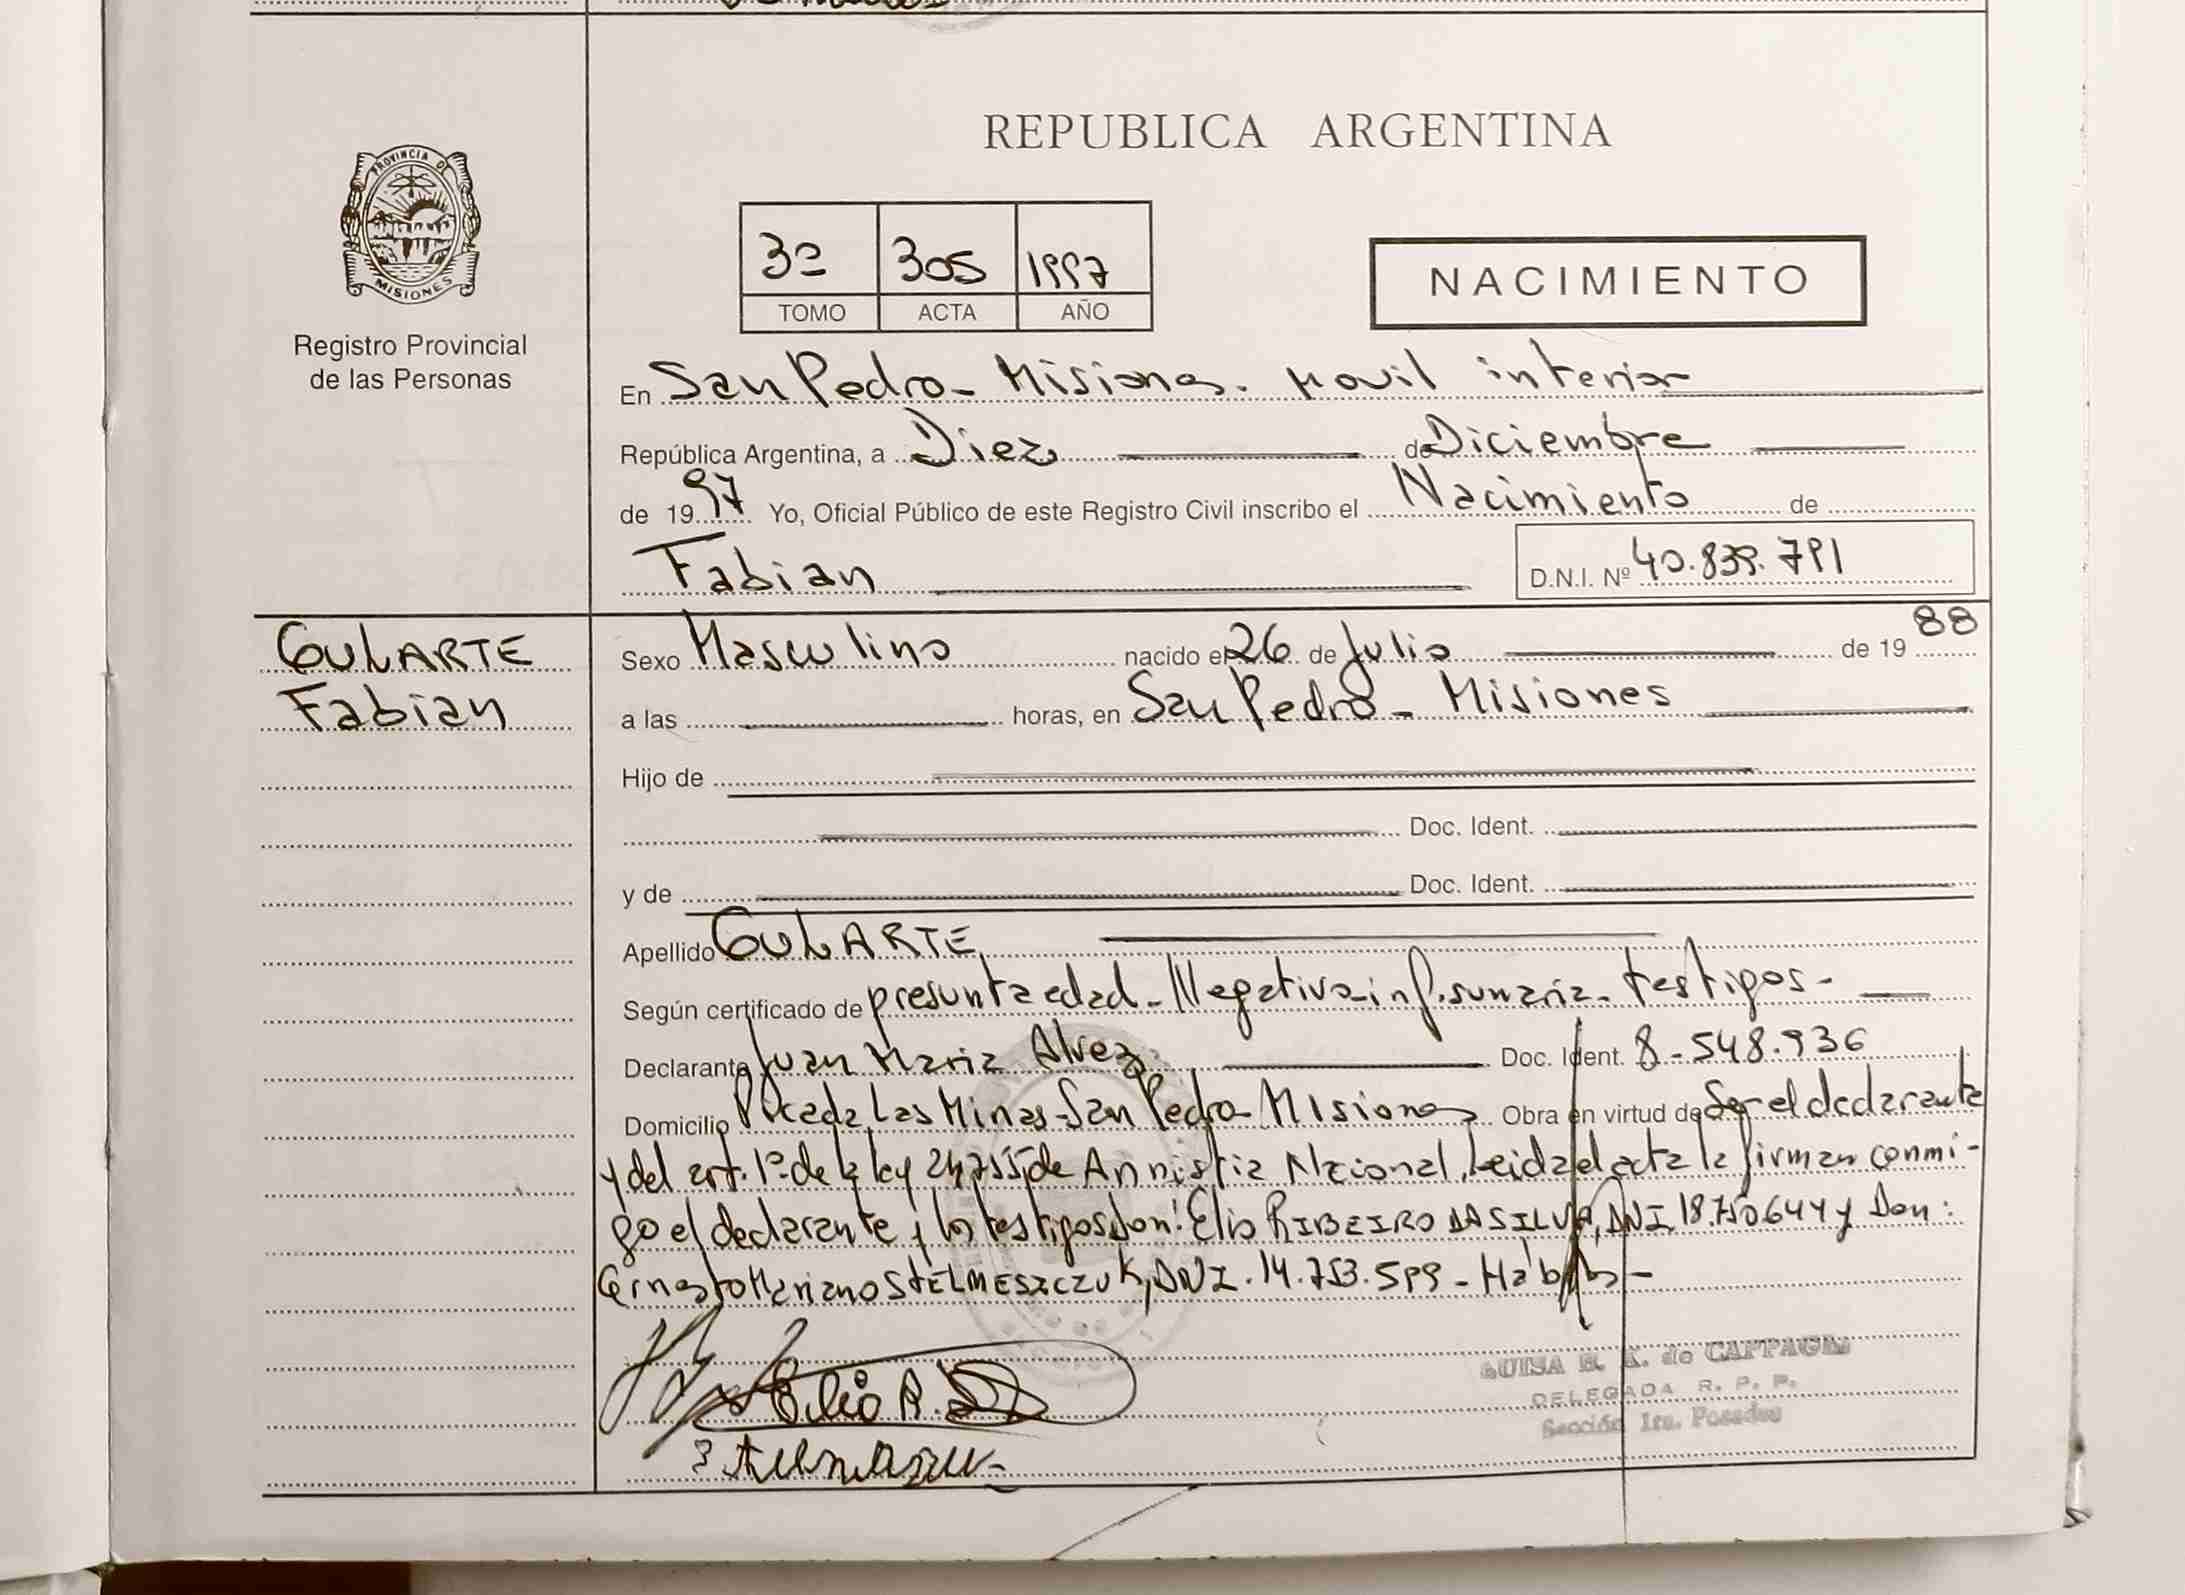 REPUBLICA ARGENTINA
PROVINCIA DE
MISIONES
Registro Provincial
de las Personas
3º 305 1997
TOMO ACTA AÑO
NACIMIENTO
En San Pedro - Misiones. Movil interior
República Argentina, a Diez de Diciembre
de 1997 Yo, Oficial Público de este Registro Civil inscribo el Nacimiento de
Fabian D.N.I. Nº 40.839.791
GULARTE
Fabian
Sexo Masculino nacido el 26 de Julio de 1988
a las horas, en San Pedro - Misiones
Hijo de
Doc. Ident.
y de Doc. Ident.
Apellido GULARTE
Según certificado de presunta edad - Negativa - inf. sumaria - testigos -
Declarante Juan Maria Alvez Doc. Ident. 8-548.936
Domicilio Picada Las Minas - San Pedro - Misiones Obra en virtud de Ser el declarante
y del art. 1º de la ley 24755 de Amnistia Nacional, Leida el acta la firman conmi-
go el declarante y los testigos don: Elio RIBEIRO DA SILVA, DNI. 18.750.644 y Don:
Ernesto Mariano STELMESZCZUK, DNI. 14.753.599 - Habiles -
Elio R.
LUISA E. A. de CAPPAGLI
DELEGADA R. P. P.
Sección 1ra. Posadas